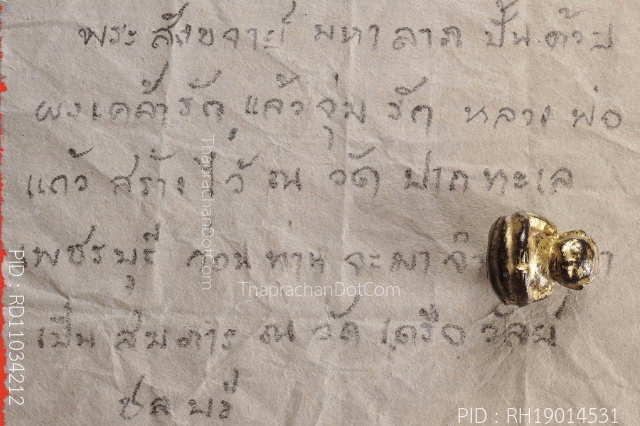 พระ สังขจาย์ มหาลาภ ปั้นด้วย
ผงเคล้ารัก แล้วจุ่ม รัก หลวงพ่อ
แก้ว สร้างไว้ ณ วัด ปากทะเล
เพชรบุรี ก่อน ท่าน จะมา
เป็น สมภาร ณ วัด เครือวัลย์
ชลบุรี
ThaprachanDotCom
ThaprachanDotCom
PID : RD11034212
PID : RH19014531